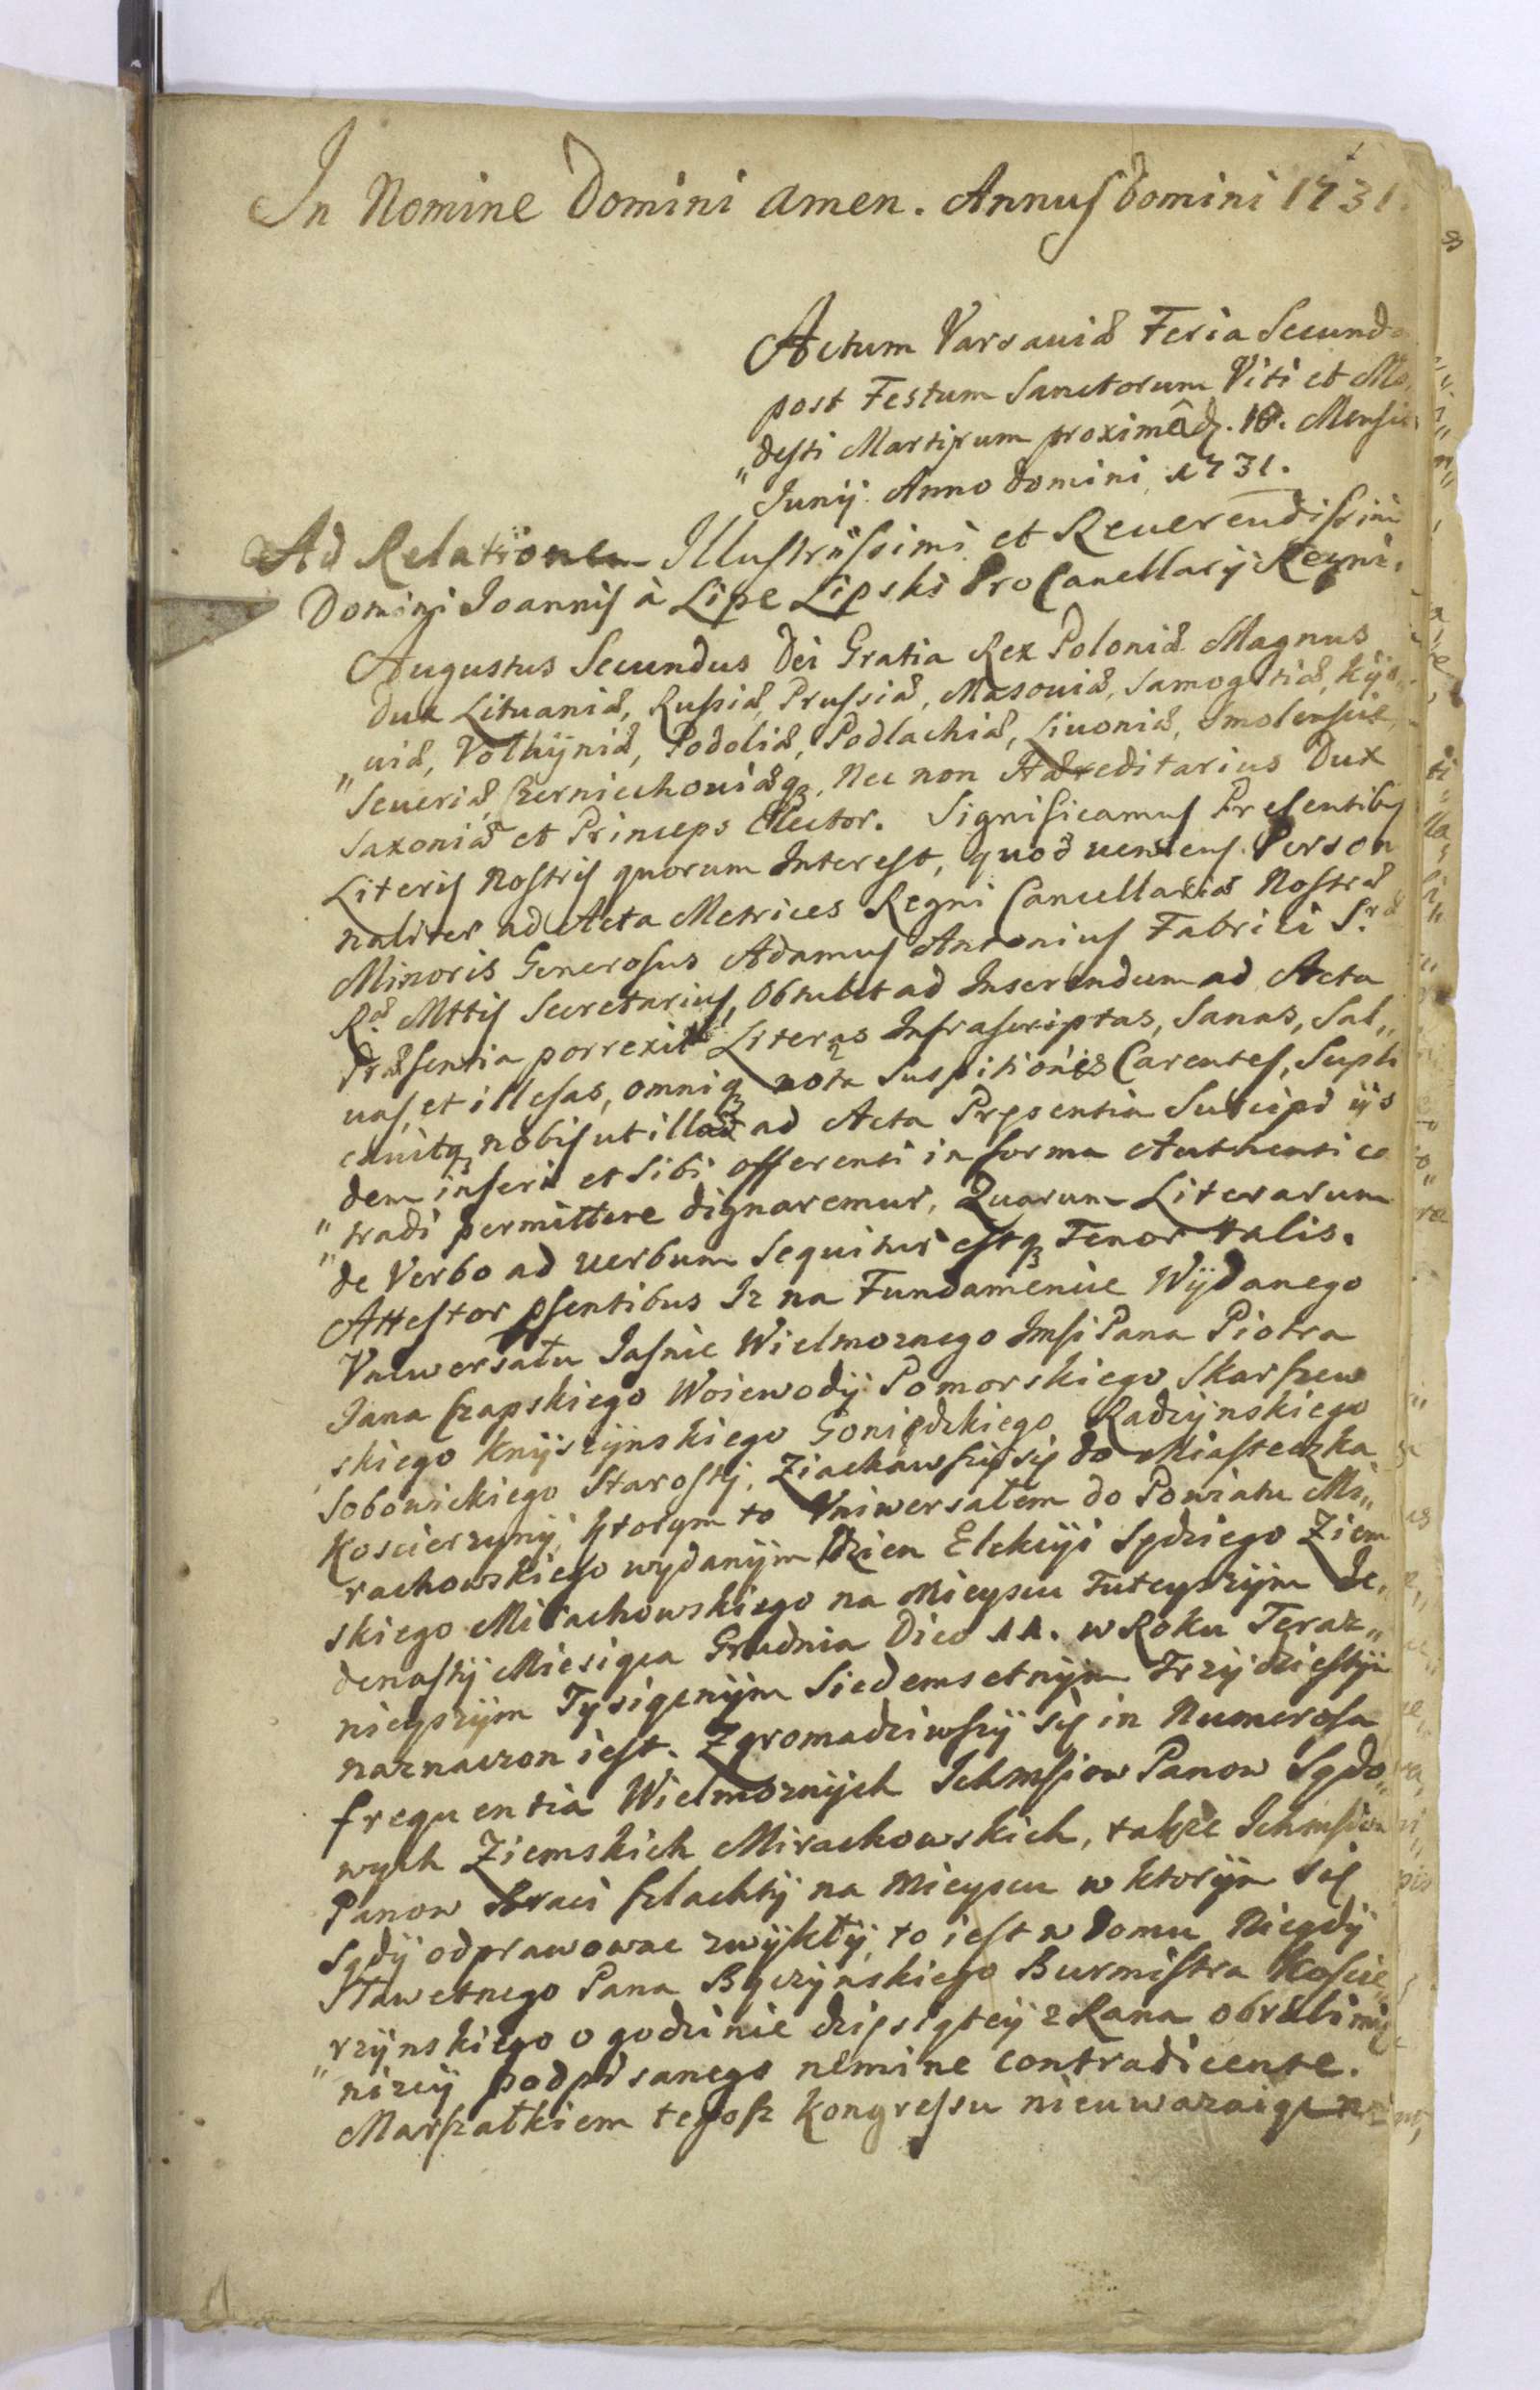 In Nomine Domini Amen. Annus Domini 1731.
Actum Varsaviæ Feria Secunda
post Festum Sanctorum Viti et Mo,
"desti Martirum proximâ d. 18. Mensis
Junij Anno Domini 1731.
Ad Relationem Illustrissimi et Reuerendissimi
Domini Joannis à Lipe Lipski ProCancellarij Regni.
Augustus Secundus Dei Gratia Rex Poloniæ Magnus
Dux Lituaniæ, Russiæ, Prussiæ, Masouiæ, Samogitiæ, Kijo„
"uiæ, Volhijniæ, Podoliæ, Podlachiæ, Liuoniæ, Smolensciæ,
Seueriæ Czerniechouiæq₃, Nec non Hæreditarius Dux
Saxoniæ et Princeps Elector. Significamus Presentibus
Literis Nostris quorum Interest, quod ueniens Person
naliter ad Acta Metrices Regni Cancellariæ Nostræ
Minoris Generosus Adamus Antonius Fabrici S.ræ
R.æ Mttis Secretarius, Obtulit ad Inserendum ad Acta
Præsentia porrexit Literas Infrascriptas, Sanas, Sal„
uas, et illesas, omniq₃ nota Suspitionis Carentes, Supli
cauitq₃ nobis ut illas ad Acta Præsentia Suscipi ijs
"dem inseri et Sibi offerenti in forma Authentica
"tradi permittere dignaremur, Quarum Literarum
de Verbo ad uerbum Sequitur estq₃ Tenor talis.
Attestor psentibus Iz na Fundamencie Wÿdanego
Vniwersału Jasnie Wielmoznego Jmsi Pana Piotra
Jana Czapskiego Woiewodÿ Pomorskiego Skarszew
skiego Knÿszÿnskiego Goniędzkiego Radzÿnskiego
Sobowickiego Starostÿ, Ziachawszÿ się do Miasteczka
Koscierzynÿ, ktorym to Vniwersałem do Powiatu Mi„
rachowskiego wydanÿm Dzien Elekcÿi Sędziego Ziem
skiego Mirachowskiego na Mieyscu Tuteyszÿm Je„
denastÿ Miesiąca Grudnia Dico 11. w Roku Teraz„
nieyszÿm Tysiącnÿm Siedemsetnÿm Trzÿdziestÿm
naznaczon iest. Zgromadziwszÿ się in Numerosa
frequentia Wielmoznÿch Ichmsiow Panow Sądo„
wych Ziemskich Mirachowskich, także Ichmsiow
Panow Braci Szlachtÿ na Mieyscu w ktorÿm się
Sądÿ odprawowac zwÿkłÿ, to iest w Domu Niegdÿ
Sławetnego Pana Bączÿnskiego Burmistra Koscie„
"rzÿnskiego o godzinie dziesiątey z Rana obrali mię
"nizeÿ podpisanego nemine contradicente.
Marszałkiem tegosz Kongressu nieuwazaiąc